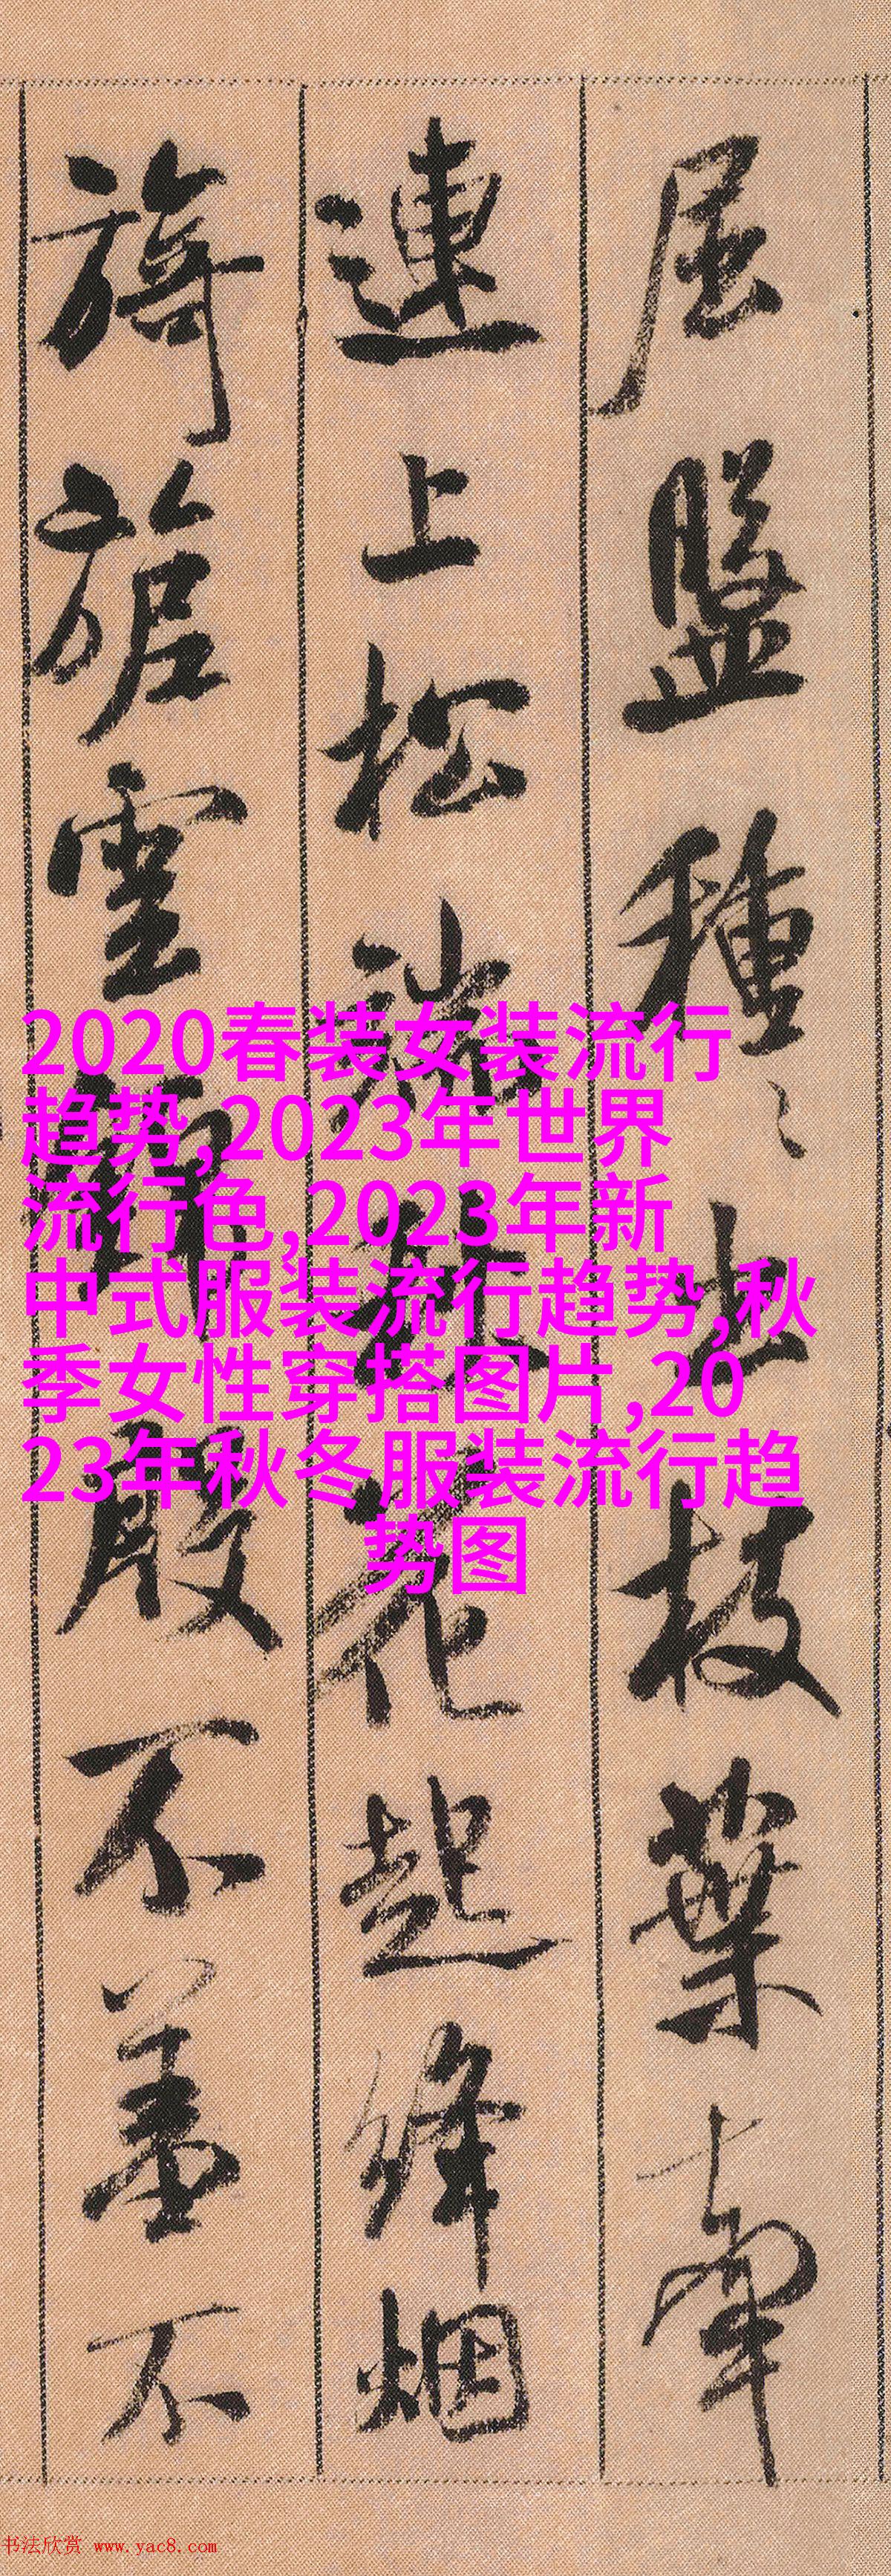 屈盤種〻出枝葉牽
連上松端秋花起絳烟
旖旎雲錦殷不羞不
2020春装女装流行
趋势,2023年世界
流行色,2023年新
中式服装流行趋势,秋
季女性穿搭图片,20
23年秋冬服装流行趋
势图
书法欣赏 www.yac8.com